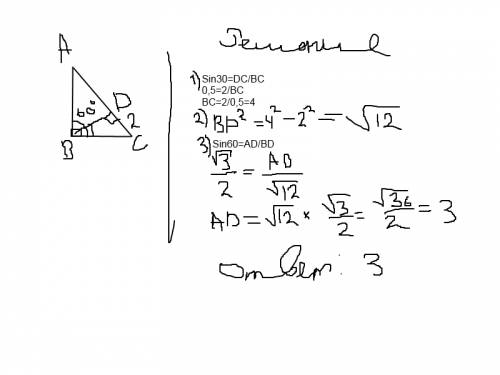 A
60°
D
2
B
C
Решение
1) Sin30=DC/BC
0,5=2/BC
BC=2/0,5=4
2) BD²=4²-2²=√12
3) Sin60=AD/BD
√3/2=AD/√12
AD=√12*√3/2=√36/2=3
ответ: 3